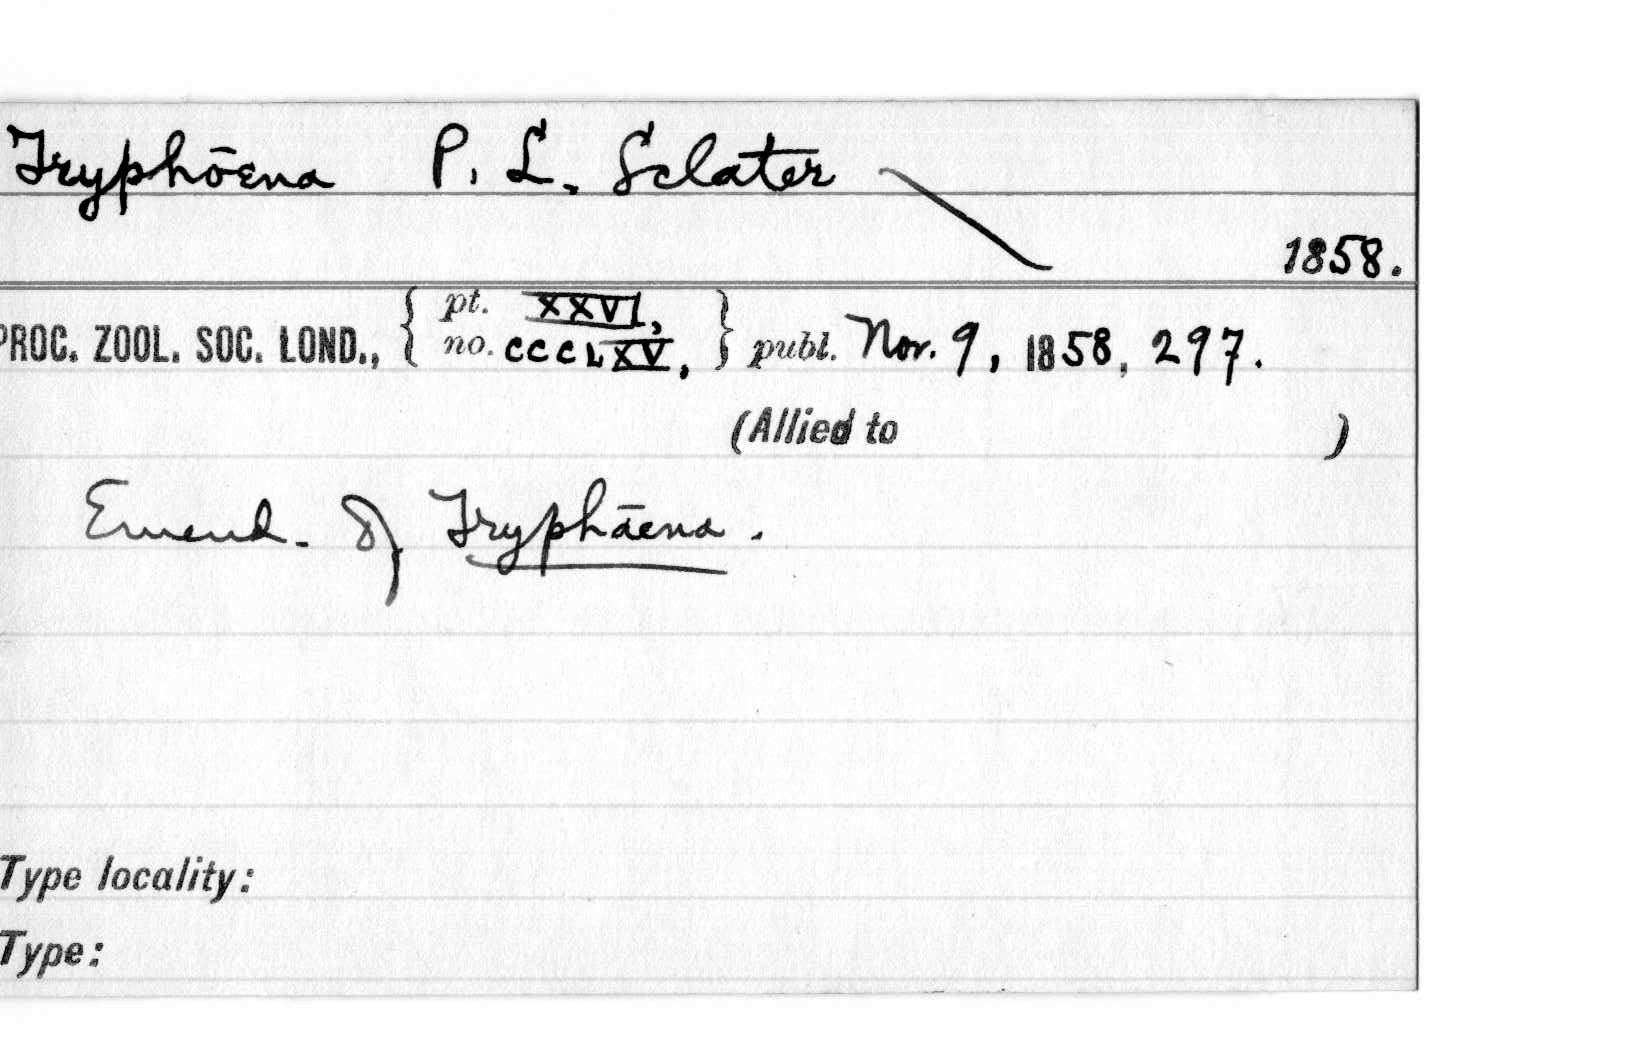 Tryphōena P. L. Sclater
1858.
PROC. ZOOL. SOC. LOND., { pt. XXVI, no. CCCLXV, } publ. Nov. 9, 1858, 297.
(Allied to )
Emend. of Tryphāena.
Type locality:
Type: